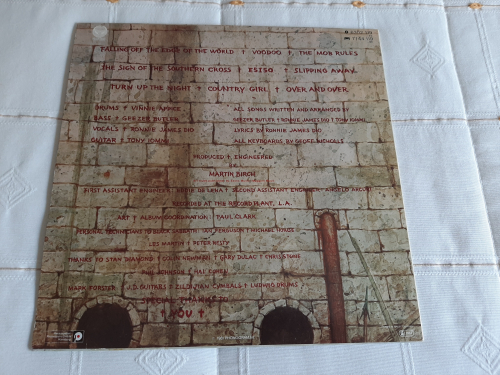 FALLING OFF THE EDGE OF THE WORLD † VOODOO † THE MOB RULES
THE SIGN OF THE SOUTHERN CROSS † E5150 † SLIPPING AWAY
TURN UP THE NIGHT † COUNTRY GIRL † OVER AND OVER
DRUMS † VINNIE APPICE
BASS † GEEZER BUTLER
VOCALS † RONNIE JAMES DIO
GUITAR † TONY IOMMI
ALL SONGS WRITTEN AND ARRANGED BY
GEEZER BUTLER † RONNIE JAMES DIO † TONY IOMMI
LYRICS BY RONNIE JAMES DIO
ALL KEYBOARDS BY GEOFF NICHOLLS
PRODUCED † ENGINEERED
BY
MARTIN BIRCH
FIRST ASSISTANT ENGINEER † EDDIE DE LENA † SECOND ASSISTANT ENGINEER † ANGELO ARCURI
RECORDED AT THE RECORD PLANT, L.A.
ART † ALBUM COORDINATION † PAUL CLARK
PERSONAL TECHNICIANS TO BLACK SABBATH † IAN FERGUSON † MICHAEL HOWSE
LES MARTIN † PETER RESTY
THANKS TO STAN DIAMOND † COLIN NEWMAN † GARY DULAC † CHRIS STONE
JOHNSON † COHEN
MARK FORSTER † J.D. GUITARS † ZILDJIAN CYMBALS † LUDWIG DRUMS
SPECIAL THANKS TO
† YOU †